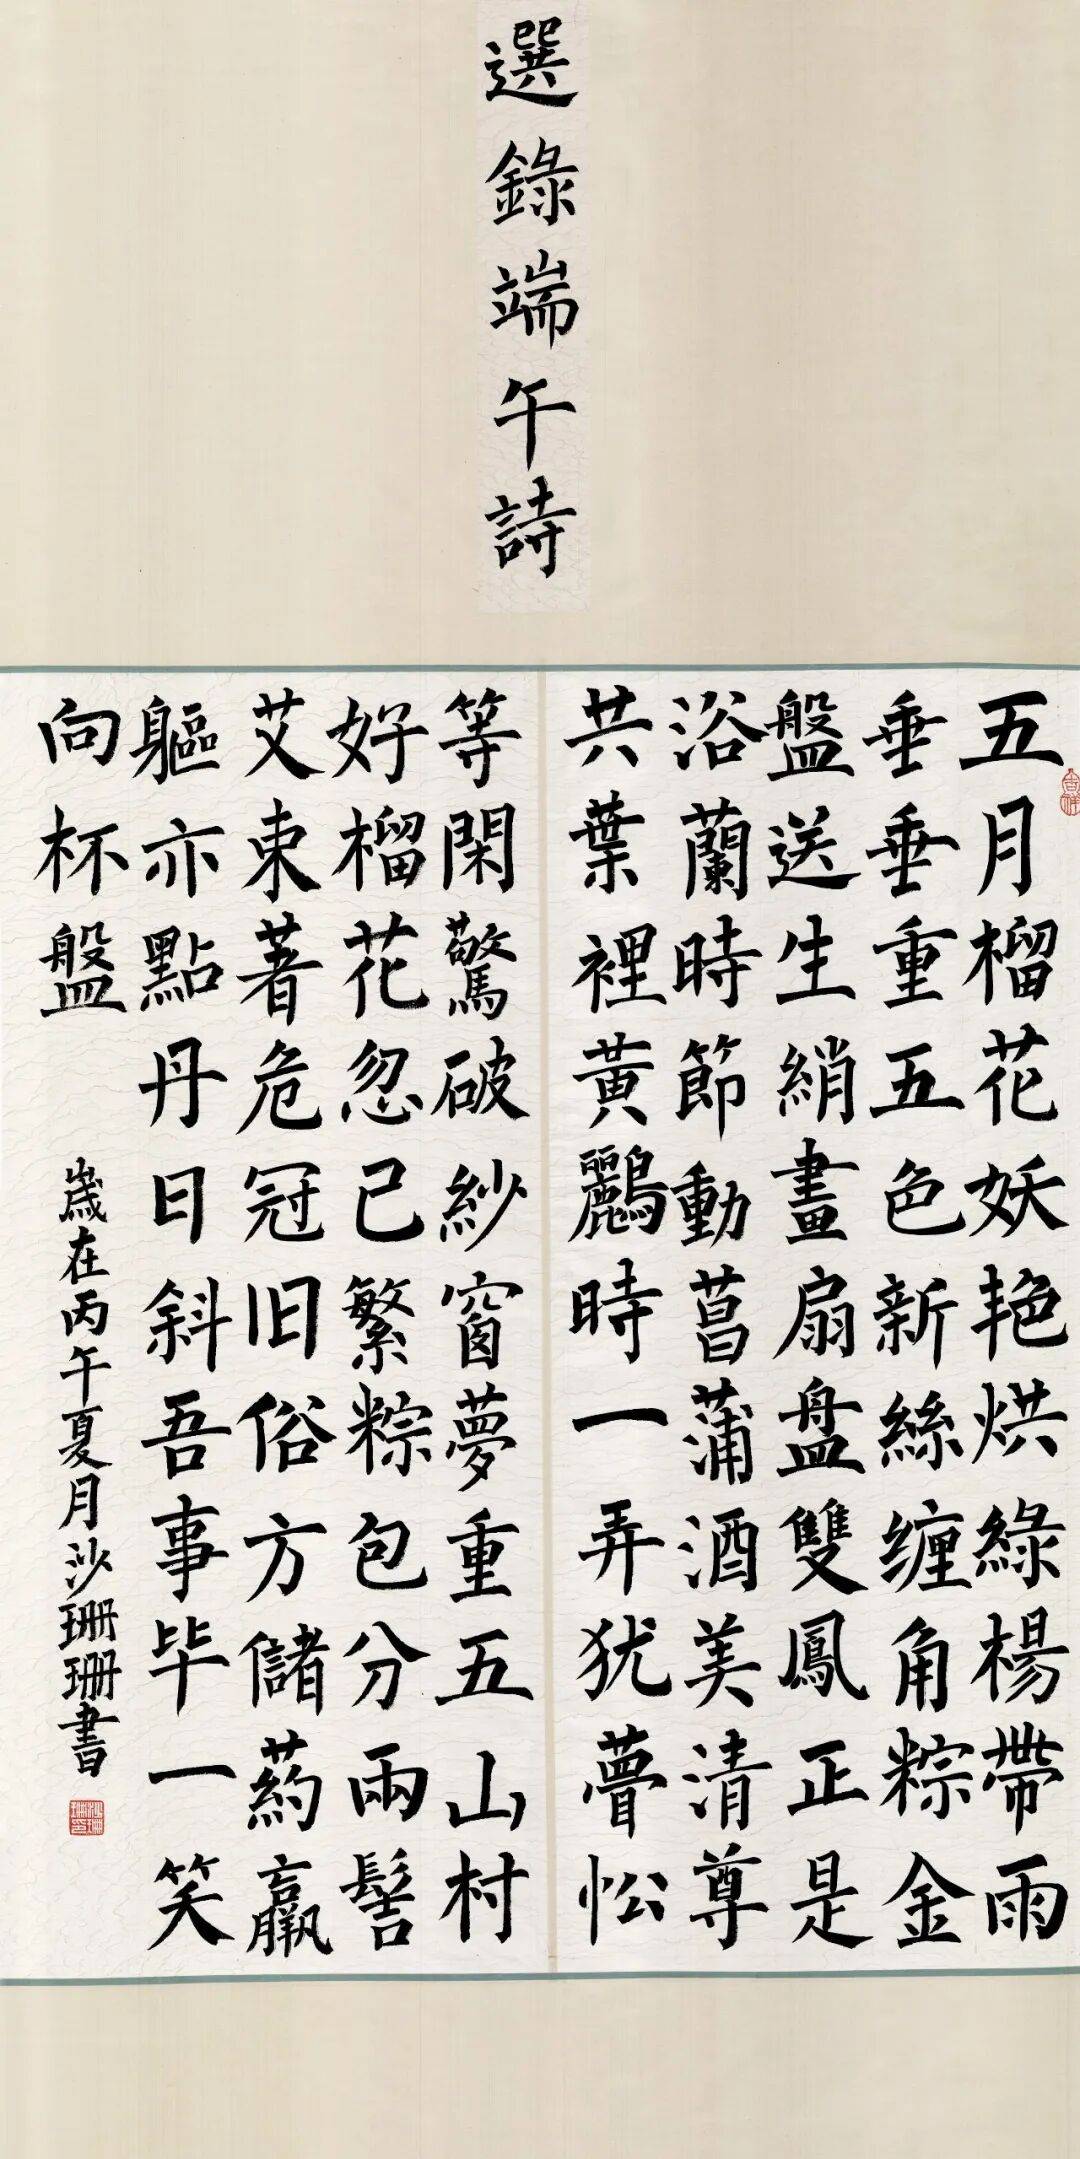 選錄端午詩
五月榴花妖艳烘綠楊帶雨
垂垂重五色新絲缠角粽金
盤送生綃畫扇盘雙鳳正是
浴蘭時節動菖蒲酒美清尊
共葉裡黃鸝時一弄犹瞢忪
等閑驚破紗窗夢重五山村
好榴花忽已繁粽包分兩髻
艾束著危冠旧俗方儲药羸
軀亦點丹日斜吾事毕一笑
向杯盤
歲在丙午夏月沙珊珊書
吉祥